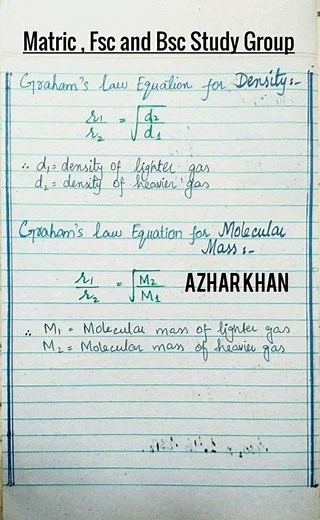 Matric , Fsc and Bsc Study Group
Graham's law Equation for Density:-
r1/r2 = √d2/d1
∴ d1= density of lighter gas
d2= density of heavier gas
Graham's law Equation for Molecular
Mass:-
r1/r2 = √M2/M1
AZHAR KHAN
∴ M1 = Molecular mass of lighter gas
M2 = Molecular mass of heavier gas